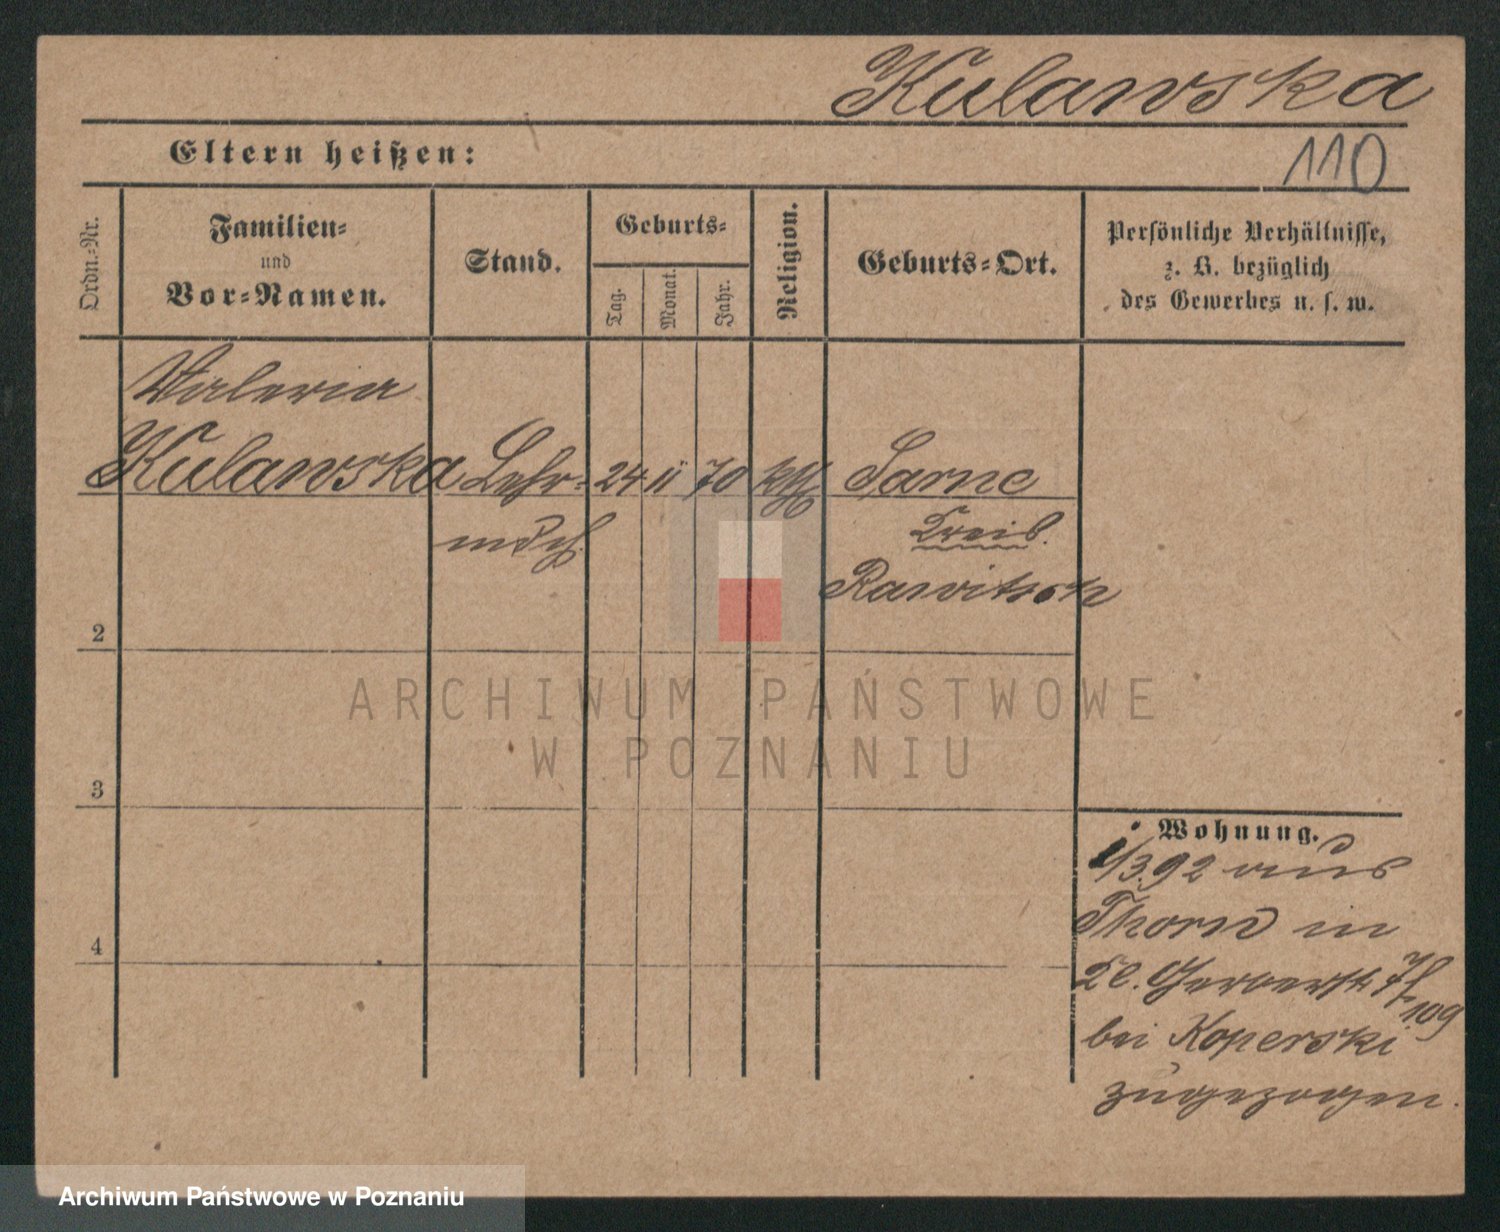 Kulawska
Eltern heißen:
110
Ordn.-Nr.
Familien-
und
Vor-Namen.
Stand.
Geburts-
Tag.
Monat.
Jahr.
Religion.
Geburts-Ort.
Persönliche Verhältnisse,
z. B. bezüglich
des Gewerbes u. s. w.
Valeria
Kulawska Lehr- 24 11 70 kth Sarne
mdch. Kreis
Rawitsch
2
3
4
Wohnung.
1/3.92 aus
Thorn in
Kl. Gerberstr. 7/
109
bei Koperski
zugezogen.
ARCHIWUM PAŃSTWOWE
W POZNANIU
Archiwum Państwowe w Poznaniu